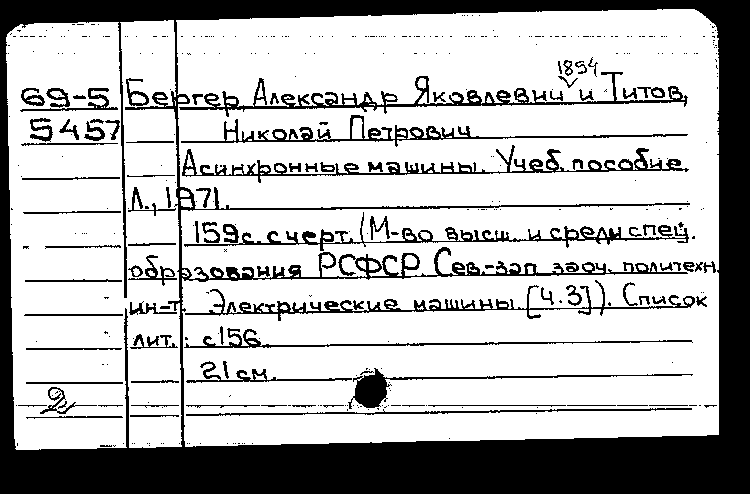 1894
69-5 Бергер, Александр Яковлевич и Титов,
5457 Николай Петрович.
Асинхронные машины. Учеб. пособие.
Л., 1971.
159с. с черт. (М-во высш. и средн спец.
образования РСФСР. Сев.-зап. заоч. политехн.
ин-т. Электрические машины. [Ч.3]). Список
лит.: с156.
21 см.
2